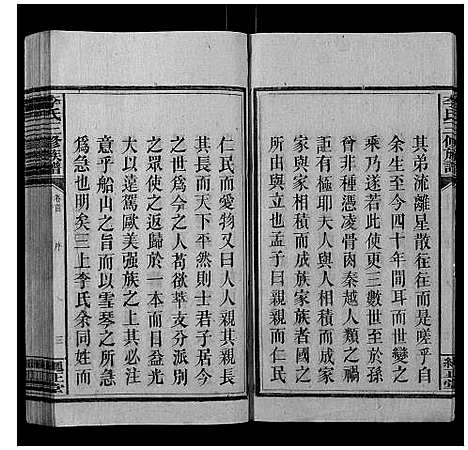 李氏三修族譜
其弟流離星散往往而是嗟乎自
余生至今四十年間耳而世變之
乘乃遂若此使更三數世至於孫
曾非種憑凌骨肉秦越人類之禍
詎有極耶夫人與人相積而成家
家與家相積而成族家族者國之
所由與立也孟子曰親親而仁民
仁民而愛物又曰人人親其親長
其長而天下平然則士君子居今
之世爲今之人苟欲萃支分派別
之眾使之返歸於一本而目益光
大以遠駕歐美強族之上其必注
意乎船山之旨而以雪琴之所急
爲急也明矣三上李氏余同姓而
李氏三修族譜
卷首
序
三